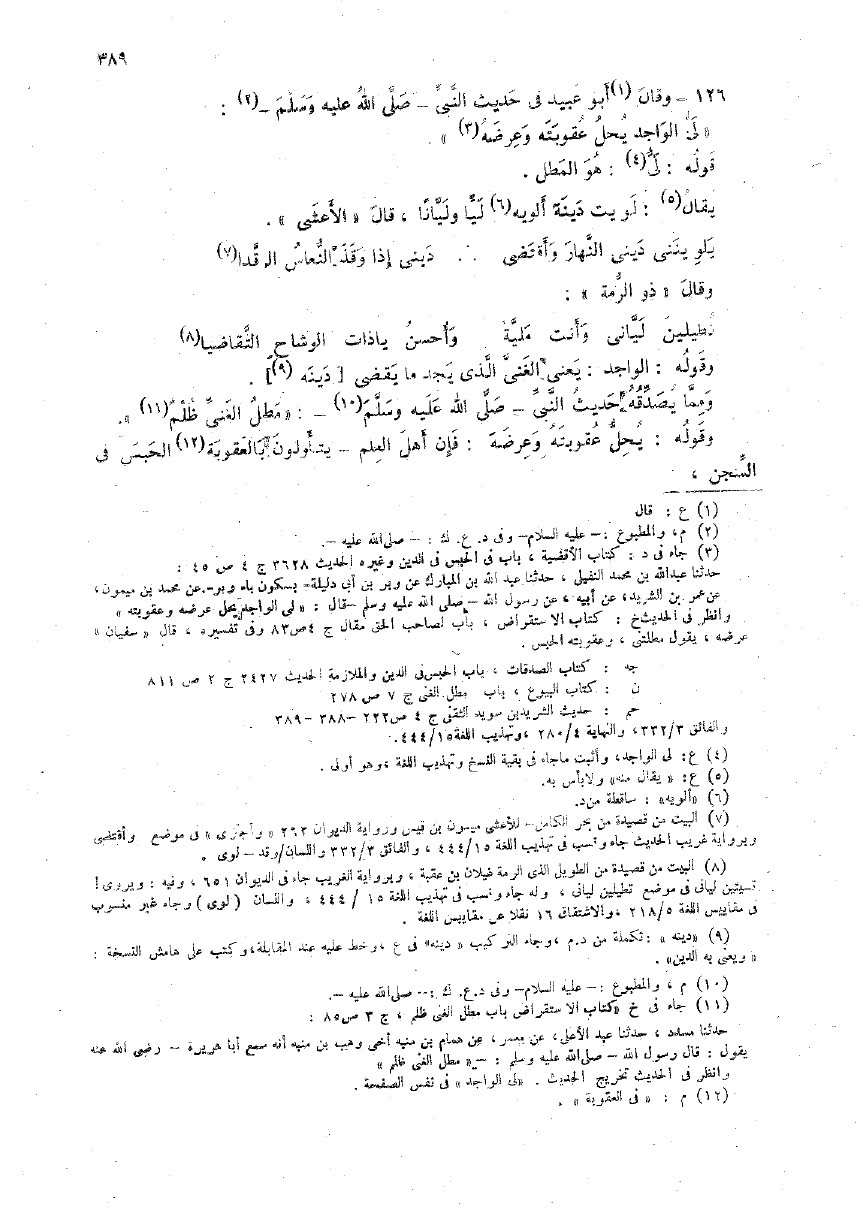 ٣٨٩
١٢٦ – وقالَ (١) أبو عَبيد فى حَديث النَّبيِّ – صَلَّى اللهُ عليه وَسَلَّمَ –(٢) :
« لَىُّ الوَاجد يُحلُّ عُقوبَتَه وَعِرضَهُ(٣) » .
قَولُه : لَىُّ(٤) : هُوَ المَطل .
يقالُ(٥) : لَويت دَينَهُ ألويه(٦) لَيًّا ولَيَّانًا ، قالَ « الأَعشَى » .
يَلوِينَنى دَينى النَّهارَ وَأَقتَضى ∴ دَينى إذا وَقَذَ النُّعاسُ الرُّقَّدا(٧)
وقالَ « ذو الرُّمة » :
تُطيلينَ لَيَّانى وَأنت مَليَّةٌ وَأُحسنُ ياذات الوشاح التَّقاضيا(٨)
وقَولُه : الواجد : يَعنى الغَنىَّ الَّذى يَجد ما يَقضى [ دَينَه (٩)] .
وَممَّا يُصَدِّقُهُ حَديثُ النَّبىِّ – صَلَّى الله عَلَيه وسَلَّمَ(١٠) – : «مَطلُ الغَنىِّ ظُلْمٌ(١١) ».
وقَولُه : يُحِلُّ عُقوبتَهُ وَعِرضَهُ : فَإن أهلَ العِلم – يتأولونَ بالعَقوبَة(١٢) الحَبسَ فى
السِّجن ،
(١) ع : قال
(٢) م، والمطبوع :– عليه السلام– وفى د. ع. ك : – صلى الله عليه –.
(٣) جاء فى د : كتاب الأقضية ، باب فى الحبس فى الدين وغيره الحديث ٣٦٢٨ ج ٤ ص ٤٥ :
حدثنا عبدالله بن محمد النفيلى ، حدثنا عبد الله بن المبارك عن وبر بن أبى دليلة– بسكون باء وبر–.عن محمد بن ميمون،
عن عمر بن الشريد، عن أبيه ، عن رسول الله – صلى الله عليه وسلم – قال : « لى الواجد يحل عرضه وعقوبته »
وانظر فى الحديث خ : كتاب الاستقراض ، باب لصاحب الحق مقال ج ٣ ص ٨٣ وفى تفسيره ، قال « سفيان »
عرضه ، يقول مطلتنى ، وعقوبته الحبس .
جه : كتاب الصدقات ، باب الحبس فى الدين والملازمة الحديث ٢٤٢٧ ج ٢ ص ٨١١
ن : كتاب البيوع ، باب مطل الغنى ج ٧ ص ٢٧٨
حم : حديث الشريد بن سويد الثقفى ج ٤ ص ٢٢٢ –٣٨٨ –٣٨٩
والفائق ٣/٣٣٢، والنهاية ٤/٢٨٠ ،وتهذيب اللغة ١٥/٤٤٤.
(٤) ع: لى الواجد، وأثبت ماجاء فى بقية النسخ وتهذيب اللغة ،وهو أولى .
(٥) ع: « يقال منه» ولابأس به.
(٦) «ألويه» : ساقطة من د.
(٧) البيت من قصيدة من بحر الكامل– للأعشى ميمون بن قيس ورواية الديوان ٢٦٣ « وأجتزى » فى موضع وأقتضى
وبرواية غريب الحديث جاء ونسب فى تهذيب اللغة ١٥/٤٤٤ ، والفائق ٣/٣٣٢ واللسان/وقد – لوى .
(٨) البيت من قصيدة من الطويل الذى الرمة غيلان بن عقبة ، وبرواية الغريب جاء فى الديوان ٦٥١ ، وفيه : ويروى!
تسيئين ليانى فى موضع تطيلين ليانى ، وله جاء ونسب فى تهذيب اللغة ١٥ / ٤٤٤ ، واللسان ( لوى ) وجاء غير منسوب
فى مقاييس اللغة ٥/٢١٨ ،والاشتقاق ١٦ نقلا عن مقاييس اللغة .
(٩) «دينه » :تكملة من د.م ،وجاء التركيب « دينه» فى ع ،وخط عليه عند المقابلة،وكتب على هامش النسخة :
« ويعنى به الدين» .
(١٠) م ، والمطبوع :– عليه السلام– وفى د.ع. ك :– صلى الله عليه –.
(١١) جاء فى خ «كتاب الاستقراض باب مطل الغنى ظلم ، ج ٣ ص ٨٥ :
حدثنا مسدد ، حدثنا عبد الأعلى، عن معمر ، عن همام بن منبه أخى وهب بن منبه أنه سمع أبا هريرة – رضى الله عنه
يقول : قال رسول الله – صلى الله عليه وسلم : –« مطل الغنى ظلم »
وانظر فى الحديث تخريج الحديث . «لى الواجد» فى نفس الصفحة .
(١٢) م : « فى العقوبة » .